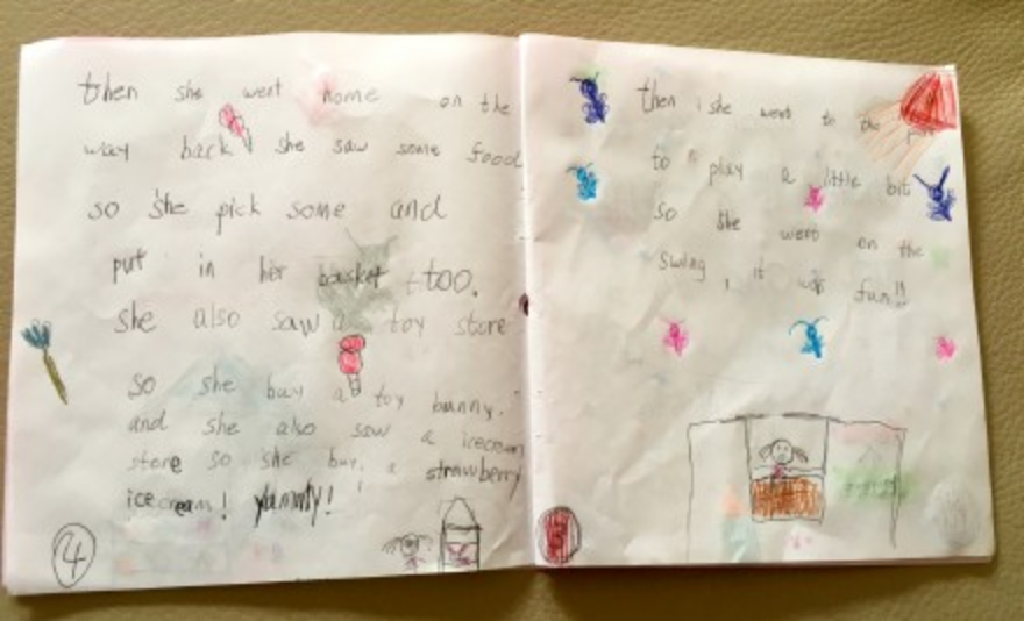 then she went home on the
way back she saw some food
so she pick some and
put in her basket too.
she also saw a toy store
so she buy a toy bunny.
and she also saw a icecream
store so she buy a strawberry
icecream! yummy!
4
then she went to the
to play a little bit
so she went on the
swing, it was fun!!
5